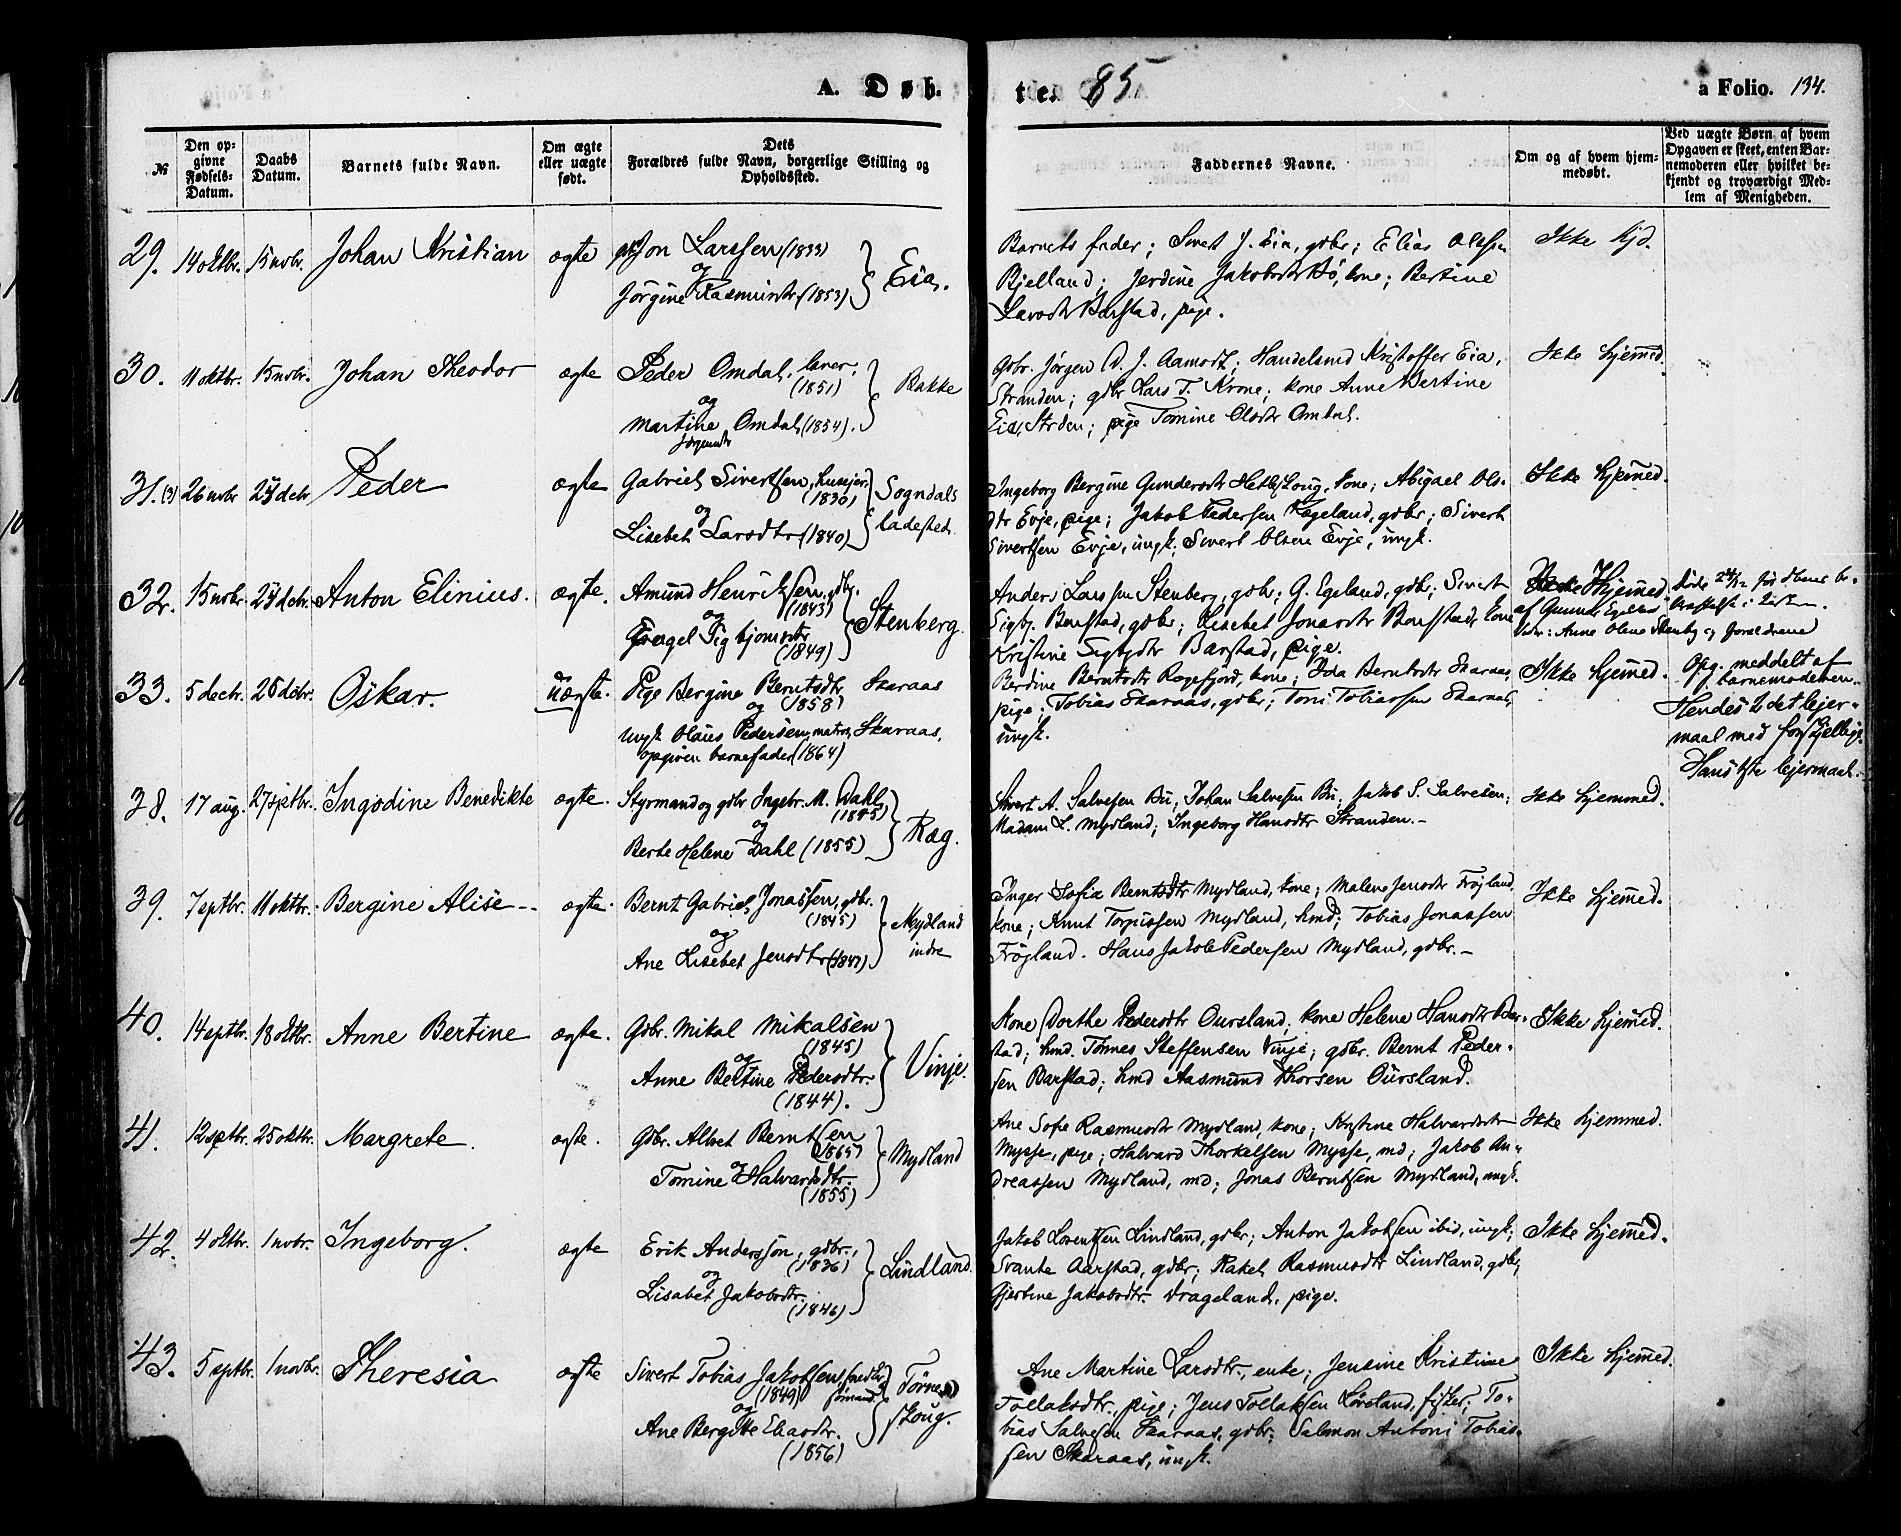 A. Døb
tes. 85
a Folio. 134.
№
Den op-
givne
Fødsels-
Datum.
Daabs
Datum.
Barnets fulde Navn.
Om ægte
eller uægte
født.
Dets
Forældres fulde Navn, borgerlige Stilling og
Opholdssted.
Faddernes Navne.
Om og af hvem hjem-
medøbt.
Ved uægte Børn af hvem
Opgaven er skeet, enten Bar-
nemoderen eller hvilket be-
kjendt og troværdigt Med-
lem af Menigheden.
29. 14 oktbr. 15 novbr. Johan Kristian ægte Jon Larssen (1833)
og
Jørgine Rasmusdtr (1853) Eia.
Barnets fader; Sivert J. Eia, gdbr; Elias Olssen
Bjelland; Jerdine Jakobsdtr Bø, kone; Bertine
Larsdtr Barstad, pige.
Ikke hjd.
30. 11 oktbr. 15 novbr. Johan Theodor ægte Peder Omdal, lærer,
(1851)
og
Martine Omdal (1854).
Jørgensdtr
Rakke
Gdbr. Jørgen A. J. Aamodt; Handelsmd Kristoffer Eia,
Stranden; gdbr Lars T. Krone; kone Anne Bertine
Eia, Strden; pige Tomine Olsdtr Omdal.
Ikke hjemmed.
31. (3) 26 novbr 27 decbr Peder ægte Gabriel Sivertsen, husejer.
(1830)
og
Lisebet Larsdtr (1840)
Sogndals
ladested.
Ingeborg Bergine Gundersdtr Hetleskoug, kone; Abigael Ols-
dtr Evje, pige; Jakob Pedersen Rægeland, gdbr; Sivert
Sivertsen Evje, ungk; Sivert Olsen Evje, ungk.
Ikke hjemmed.
32. 15 novbr. 27 decbr. Anton Elinius. ægte. Amund Henriksen, gdbr.
(1843)
og
Torgel Sigbjørnsdtr
(1849)
Stenberg.
Anders Larssen Stenberg, gdbr; G. Egeland, gdbr; Sivert
Sigbj. Barstad, gdbr; Lisebet Jonasdtr Barstad, kone
Kristine Sigbjdtr Barstad, pige.
Hjemmed
af Gunder Egeland
Vidn: Anne Olene Stenberg og Forældrene
33. 5 decbr. 26 decbr. Oskar. uægte. Pige Bergine Berntsdtr Skaraas
(1858)
og
Ungk Olaus Pedersen, matros, Skaraas,
opgiven barnefader (1864)
Berdine Berntsdtr Rægefjord, kone; Ida Berntsdtr Skaraas,
pige; Tobias Skaraas, gdbr; Toni Tobiassen Skaraas,
ungk.
Ikke hjemmed.
Opg. meddelt af
barnemoderen.
Hendes 2det lejer-
maal med forskjellige.
Hans 1ste lejermaal.
38. 17 aug. 27 septbr. Ingodine Benedikte ægte. Styrmand og gdbr Ingebr. M. Dahl
(1845)
og
Berte Helene Dahl (1855) Ræg.
Sivert A. Salvesen Bu; Johan Salvesen Bu; Jakob S. Salvesen;
Madam L. Mydland; Ingeborg Hansdtr Stranden.-
Ikke hjemmed.
39. 7 septbr. 11 oktbr. Bergine Alise-- ægte. Bernt Gabriel Jonassen, gdbr.
(1845)
og
Ane Lisebet Jensdtr (1847)
Mydland
indre
Inger Sofia Berntsdtr Mydland, kone; Malene Jensdtr Frøyland,
kone; Knut Torgussen Mydland, hmd; Tobias Jonassen
Frøyland. Hans Jakob Pedersen Mydland, gdbr.-
Ikke hjemmed.
40. 14 septbr. 18 oktbr. Anne Bertine ægte. Gdbr. Mikal Mikalsen
(1845)
og
Anne Bertine Pedersdtr.
(1844).
Vinje.
Kone Dorthe Pedersdtr Oursland; kone Helene Hansdtr Bar-
stad; hmd. Tønnes Steffensen Vinje; gdbr. Bernt Peder-
sen Barstad; hmd Aasmund Thorsen Oursland.
Ikke hjemmed.
41. 12 septbr. 25 oktbr. Margrete. ægte. Gdbr. Albret Berntsen
og
Tomine Halvarsdtr.
(1855)
Mydland
Ane Sofie Rasmusdtr Mydland, kone; Kristine Halvarsdtr
Mysse, pige; Halvard Thorkelsen Mysse, md; Jakob An-
dreassen Mydland, md; Jonas Berntsen Mydland, ungk.
Ikke hjemmed.
42. 4 oktbr. 1 novbr. Ingeborg. ægte Erik Anderssøn, gdbr.,
(1836)
og
Lisabet Jakobsdtr.
(1846)
Lindland.
Jakob Lorentsen Lindland, gdbr; Anton Jakobsen ibid, ungk;
Svante Aarstad, gdbr; Rakel Rasmusdtr Lindland, gdbr;
Gjertine Jakobsdtr. Drageland, pige.
Ikke hjemmed.
43. 5 septbr. 1 novbr. Theresia ægte Sivert Tobias Jakobsen,
(1849)
og
Ane Bergitte Eliasdtr.
(1856)
Tørne-
skoug.
Ane Martine Larsdtr., enke; Jensine Kristine
Tollaksdtr., pige; Jens Tollaksen Løvland, fisker; To-
bias Salvesen Skaraas, gdbr; Salmon Antoni Tobias-
sen Skaraas, ungk.
Ikke hjemmed.